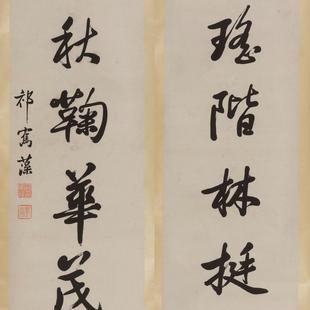 瑤階林挺
秋鞠華茂
祁寯藻